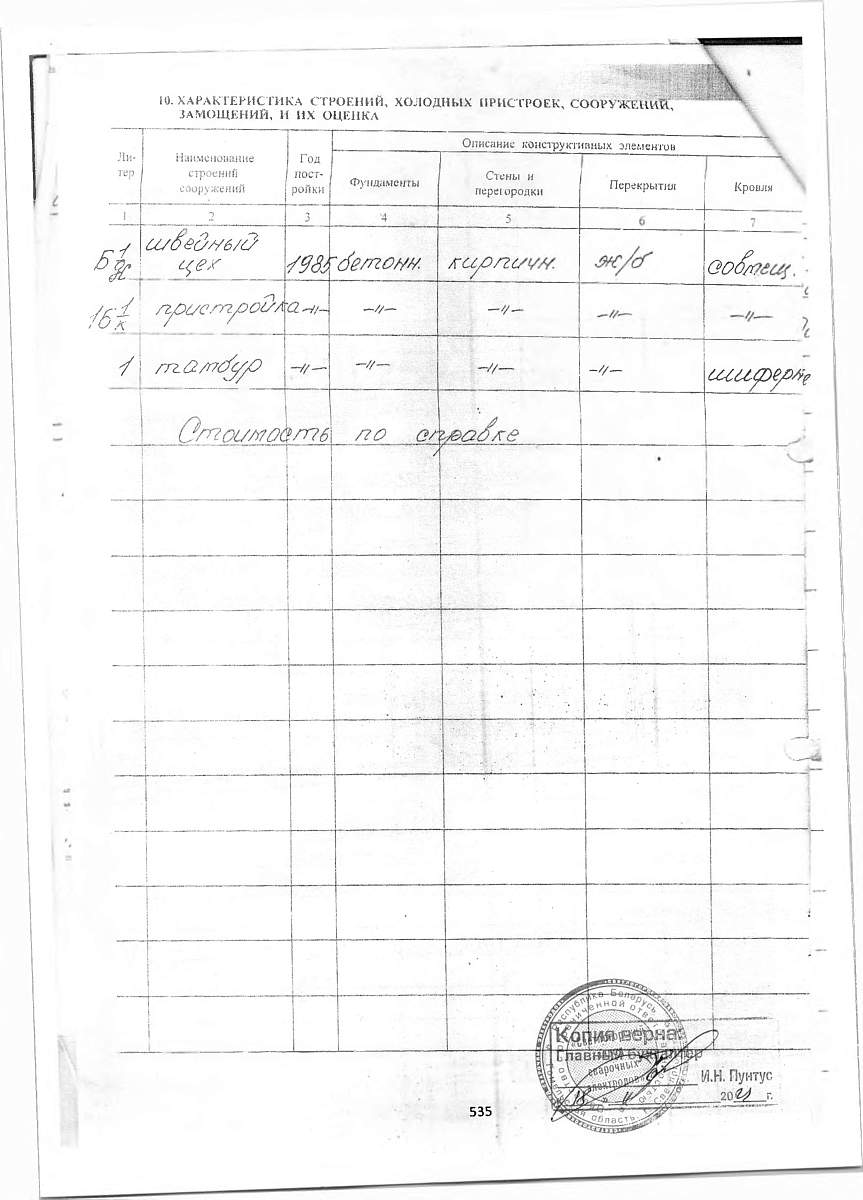 10. ХАРАКТЕРИСТИКА СТРОЕНИЙ, ХОЛОДНЫХ ПРИСТРОЕК, СООРУЖЕНИЙ,
ЗАМОЩЕНИЙ, И ИХ ОЦЕНКА
Ли-
тер
Наименование
строений
сооружений
Год
пост-
ройки
Описание конструктивных элементов
Фундаменты
Стены и
перегородки
Перекрытия
Кровля
1 2 3 4 5 6 7
швейный
цех 1985 бетонн. кирпичн. ж/б совмещ.
1Б 1/к пристройка -//- -//- -//- -//- -//-
1 тамбур -//- -//- -//- -//- шиферн
Стоимость по справке
Республика Беларусь
Копия верна:
Главный бухгалтер
сварочных
электродов
И.Н. Пунтус
18 11 2021 г.
область
535